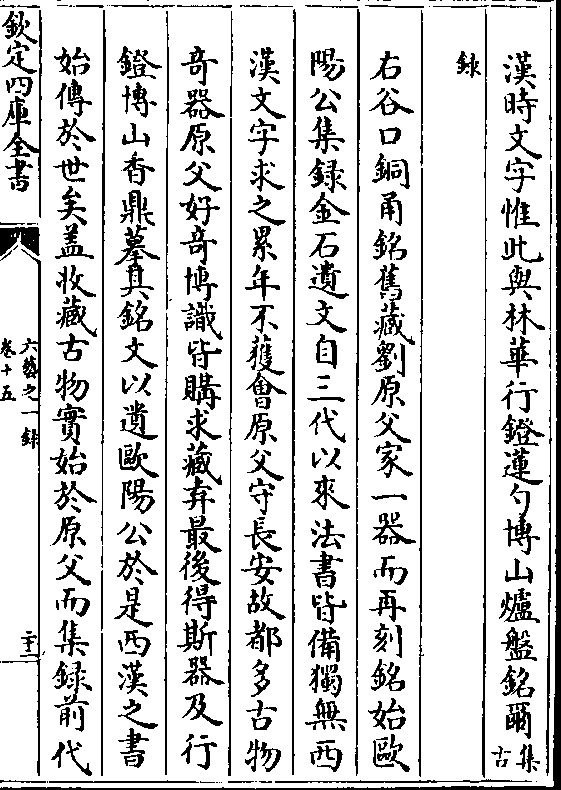 漢時文字惟此與林華行鐙蓮勺博山爐盤銘爾集古
錄
右谷口銅甬銘舊藏劉原父家一器而再刻銘始歐
陽公集録金石遺文自三代以來法書皆備獨無西
漢文字求之累年不獲會原父守長安故都多古物
奇器原父好奇博識皆購求藏弆最後得斯器及行
鐙博山香鼎摹其銘文以遺歐陽公於是西漢之書
始傳於世矣盖收藏古物實始於原父而集録前代
欽定四庫全書
六藝之一録
卷十五
二十二